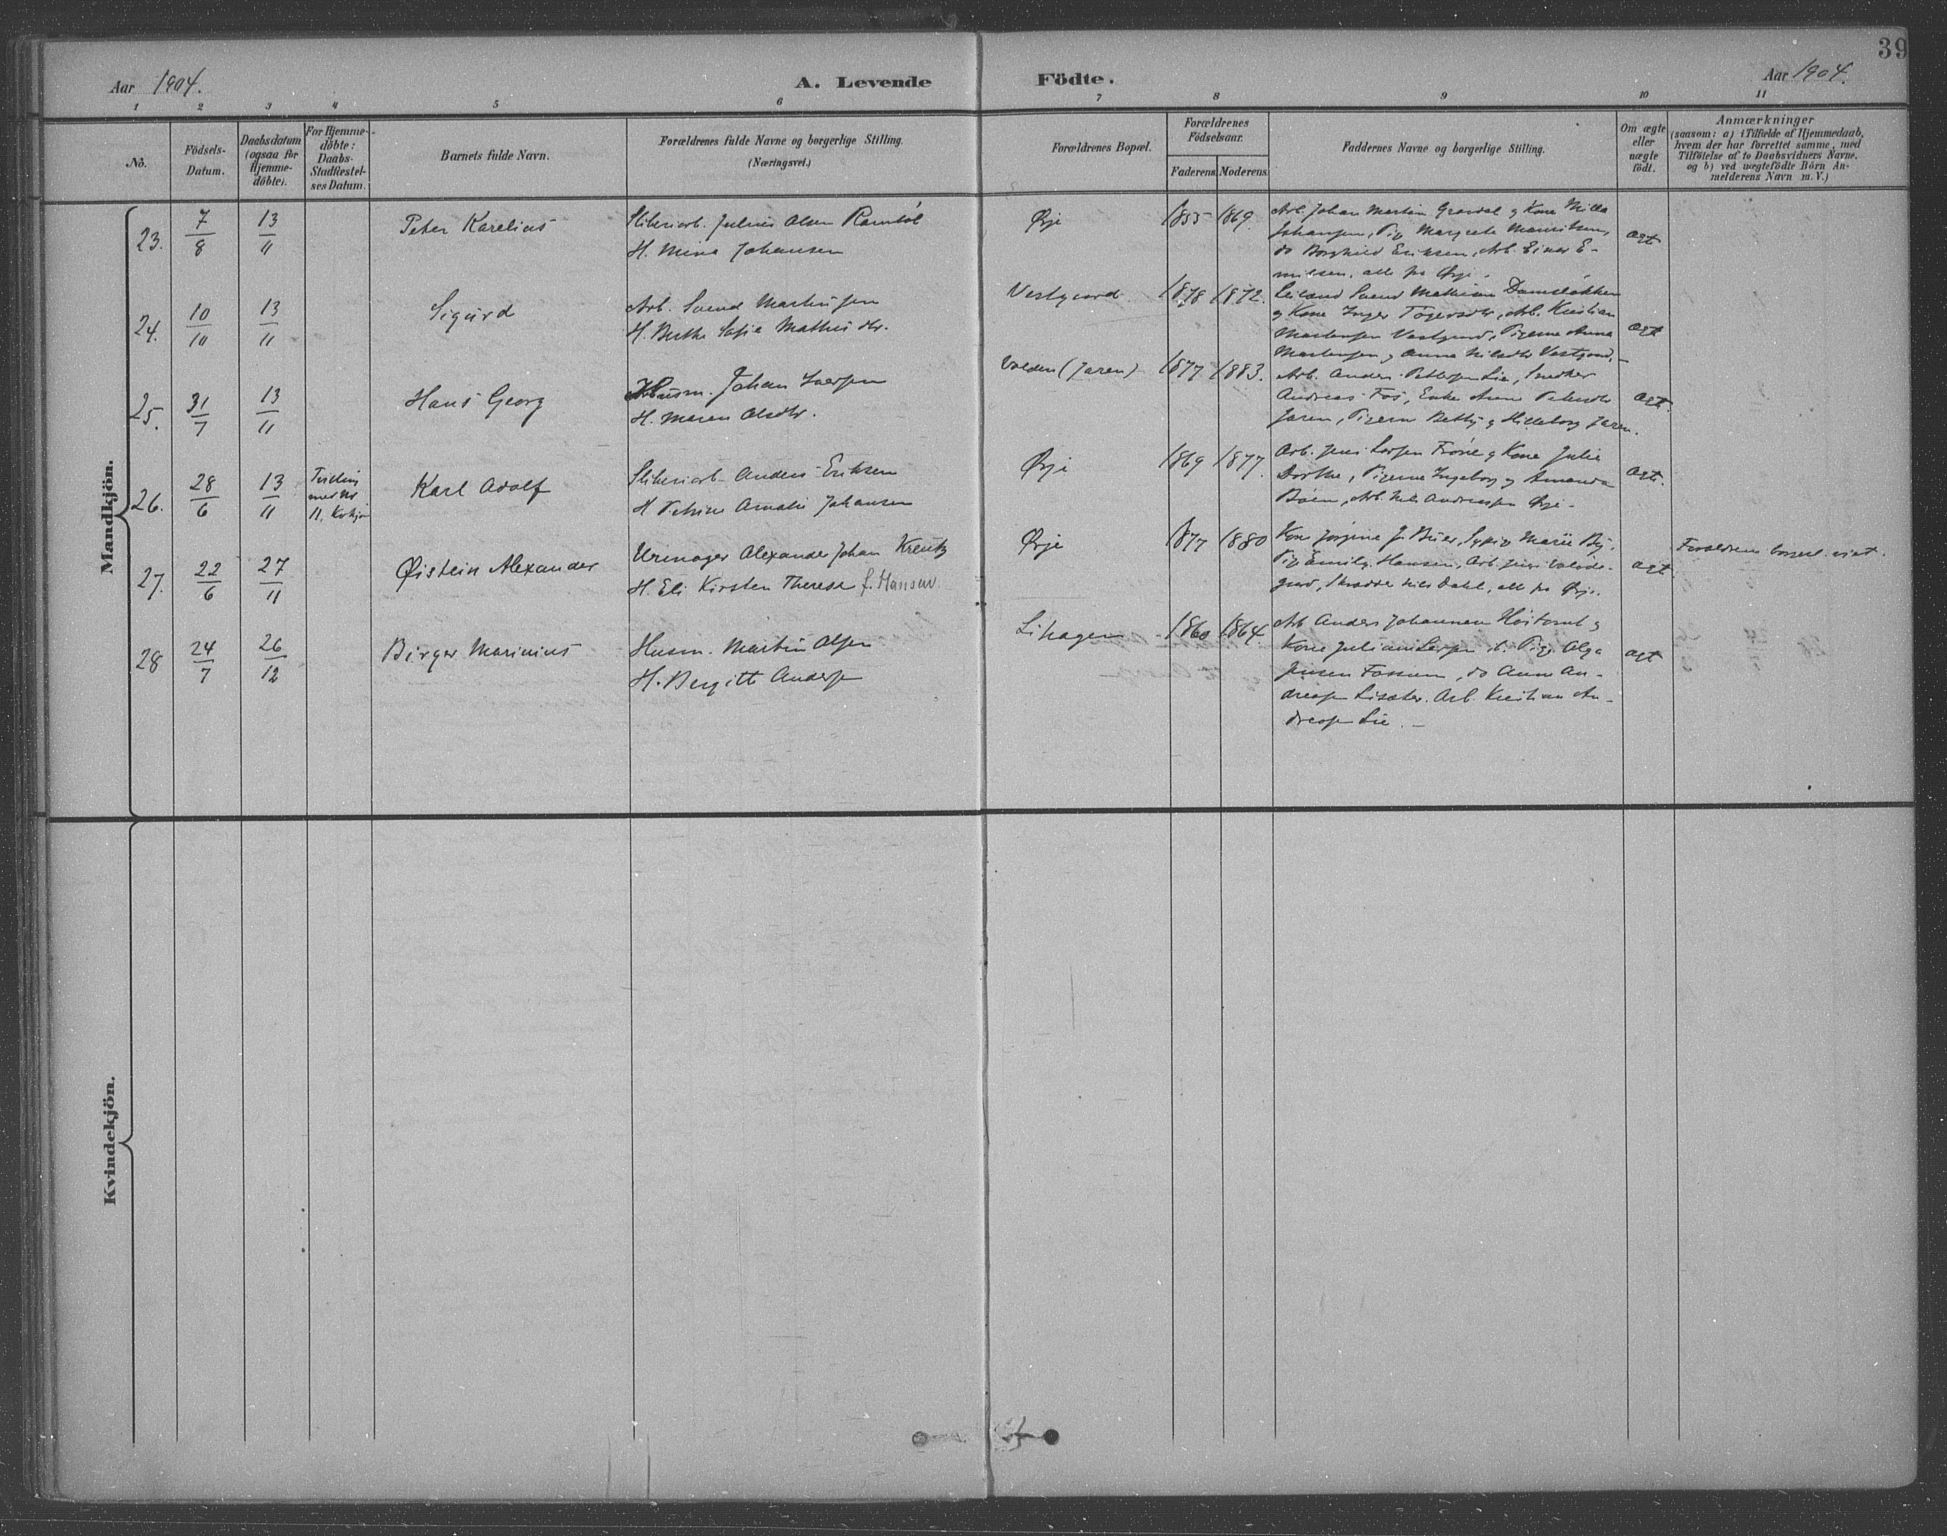 39
Aar 1904.
A. Levende Födte.
Aar 1904.
1 2 3 4 5 6 7 8 9 10 11
No.
Födsels-
Datum.
Daabsdatum
(ogsaa for
Hjemme-
døbte).
For Hjemme-
døbte:
Daabs-
Stadfæstel-
ses Datum.
Barnets fulde Navn.
Forældrenes fulde Navne og borgerlige Stilling.
(Næringsvei.)
Forældrenes Bopæl.
Forældrenes
Födselsaar.
Faderens Moderens
Faddernes Navne og borgerlige Stilling.
Om ægte
eller
uægte
født.
Anmærkninger
(saasom: a) i Tilfælde af Hjemmedaab,
hvem der har forrettet samme, med
Tilføielse af to Daabsvidners Navne,
og b) ved uægtefødte Börn An-
melderens Navn m. V.)
Mandkjön.
23. 7/8 13/11 Peter Karelius
Sliberiarb. Julius Olsen
H. Mina Johansen
Ørje 1855 1869.
Arb. Johan Martin Grasdal og Kone Milla
Johansen, Pig. Margrete Mauritsen,
do Borghild Eriksen, Arb. Einar E-
milsen, alle fra Ørje.
ægt
24. 10/10 13/11 Sigurd
Arb. Svend Martinsen
H. Berthe Sofie Mathisdtr.
Vestgaard 1878 1872.
Svend Mathisen Damsløkken
og Kone Inger, Arb. Kristian
Martensen Vestgaard, Pigerne Anna
Martensen og Anna Vestgaard,
ægt
25. 31/7 13/11 Hans Georg
Husm. Johan Iversen
H. Maren Olsdtr.
Volden (Jaren) 1877 1883.
Arb. Anders Lie, Snedker
Andreas Fos, Enke
Jaren, Pigerne Betty og Hilleborg Jaren.
ægt.
26. 28/6 13/11
11,
Karl Adolf
Sliberiarb. Anders Eriksen
H. Petrine Amalie Johansen
Ørje 1869 1877.
Arb. Jens Larsen og Kone Julie
Dorthe, Pigerne Ingeborg og Amanda
Bøen, Arb. Nils Andreassen Ørje.
ægt.
27. 22/6 27/11 Øistein Alexander
Urmager Alexander Johan Kreutz
H. Eli Kirsten Therese f. Hansen.
Ørje 1877 1880
Kone Jørgine J. Buer, Marie By,
Pig. Emily Hansen, Arb. Jens
gard, Skrædder Nils Dahl, alle fra Ørje.
ægt
Forældrene borgerl. viet.
28 24/7 26/12 Birger Marinius
Husm. Martin Olsen
H. Bergitte Andersen
Lihagen 1860 1864
Arb. Anders Johannesen Høitomt og
Kone Julian Larsen, Pig. Olga
Jensen Fossum, do Anna An-
dreasen Lisæter. Arb. Kristian An-
dreasen Lie. –
ægt
Kvindekjön.